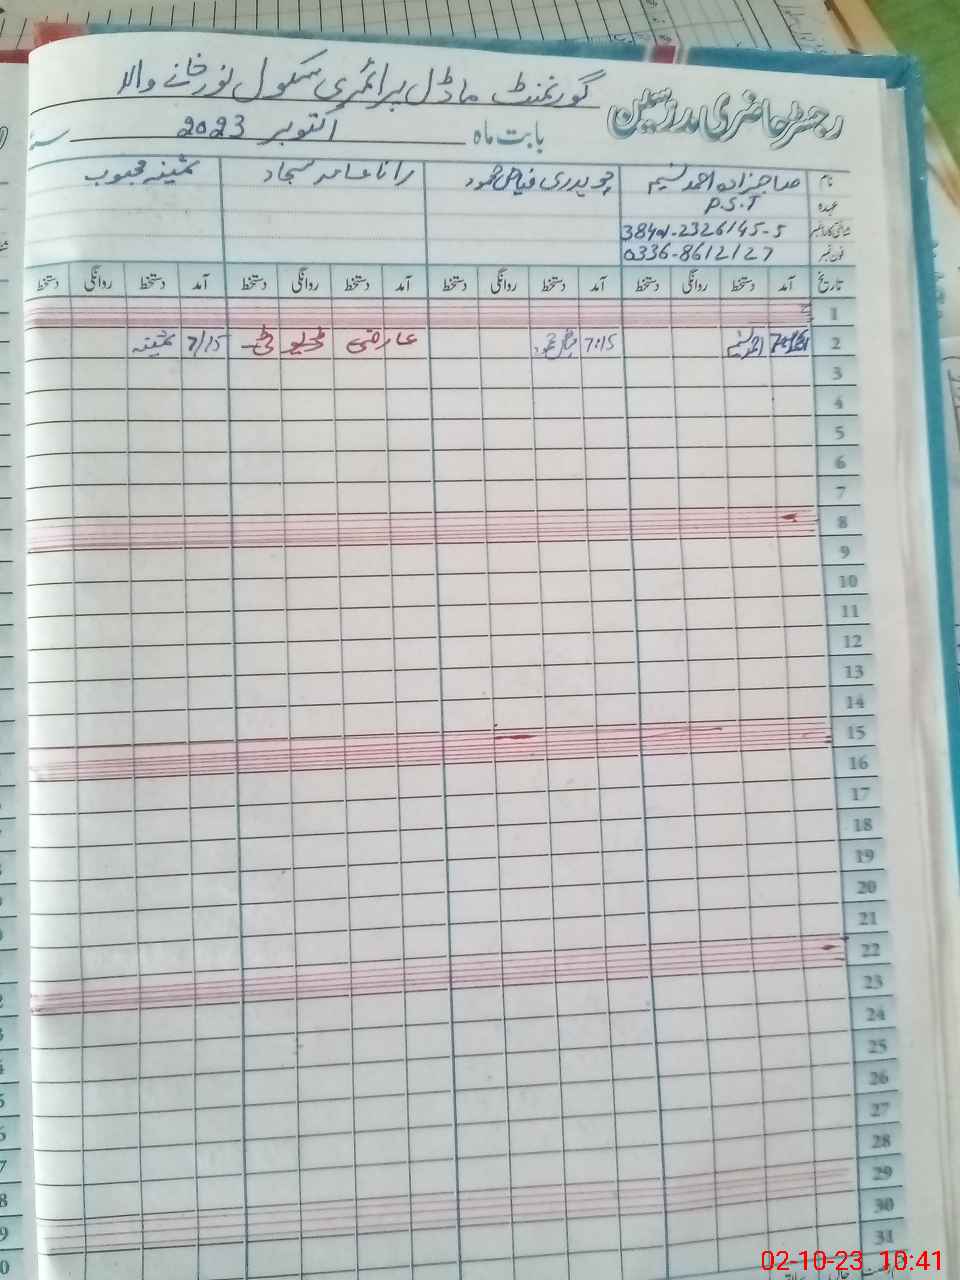 رجسٹر حاضری مدرسین
گورنمنٹ ماڈل پرائمری سکول نور خانے والا
بابت ماہ اکتوبر 2023
نام صاحبزادہ احمد نسیم چوہدری فیاض محمود رانا عامر سجاد ثمینہ محبوب
عہدہ P.S.T
شناختی کارڈ نمبر 38401-2326145-5
فون نمبر 0336-8612127
تاریخ آمد دستخط روانگی دستخط آمد دستخط روانگی دستخط آمد دستخط روانگی دستخط آمد دستخط روانگی دستخط
1
2 7:15 7:15 عارضی ڈیوٹی 7/15 ثمینہ
3
4
5
6
7
8
9
10
11
12
13
14
15
16
17
18
19
20
21
22
23
24
25
26
27
28
29
30
31
02-10-23 10:41